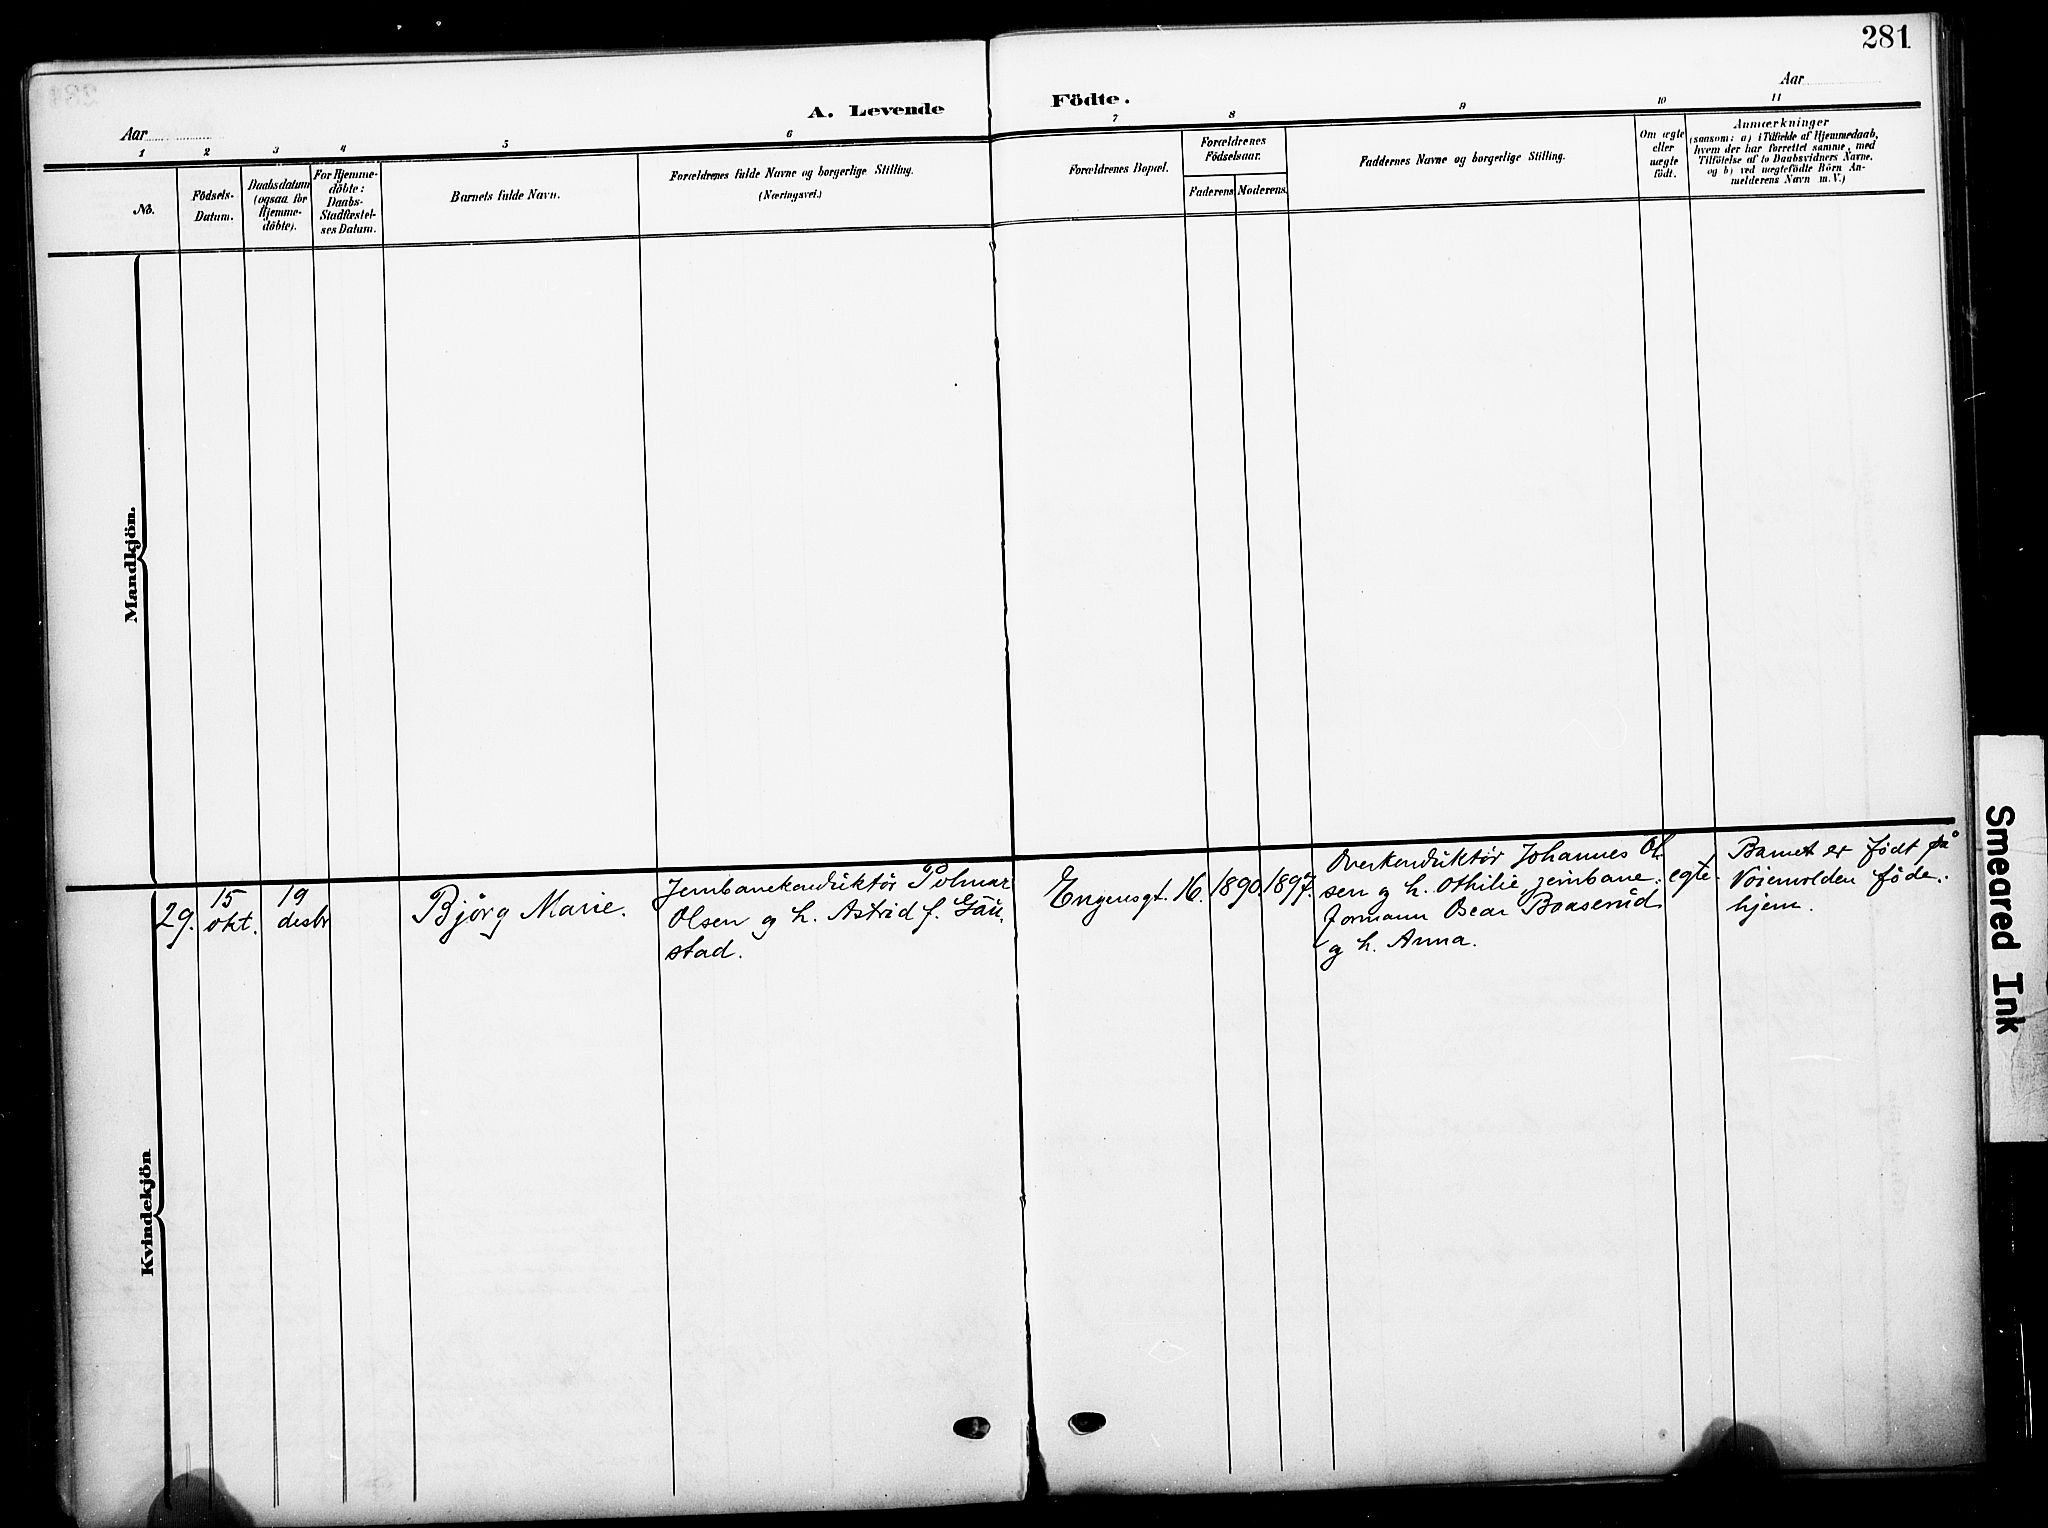 281
Aar
A. Levende Födte.
Aar
1 2 3 4 5 6 7 8 9 10 11
No.
Födsels-
Datum.
Daabsdatum
(ogsaa for
Hjemme-
döbte).
For Hjemme-
döbte:
Daabs-
Stadfæstel-
ses Datum.
Barnets fulde Navn.
Forældrenes fulde Navne og borgerlige Stilling.
(Næringsvei.)
Forældrenes Bopæl.
Forældrenes
Födselsaar.
Faderens. Moderens.
Faddernes Navne og borgerlige Stilling.
Om ægte
eller
uægte
födt.
Anmærkninger
(saasom: a) i Tilfælde af Hjemmedaab,
hvem der har forrettet samme, med
Tilföielse af to Daabsvidners Navne.
og b) ved uægtefödte Börn An-
melderens Navn m. V.)
Mandkjön.
Kvindekjön
29.
15
okt.
19
desbr
Bjørg Marie.
Jernbanekonduktør Polmar
Olsen og h. Astrid f. Gau-
stad.
Engensgt. 16.
1890.
1897.
Overkonduktør Johannes Ol-
sen og h. Othilie, jernbane-
formann Oscar Braaserud
og h. Anna.
egte.
Barnet er født på
Voienvolden føde-
hjem.
Smeared Ink